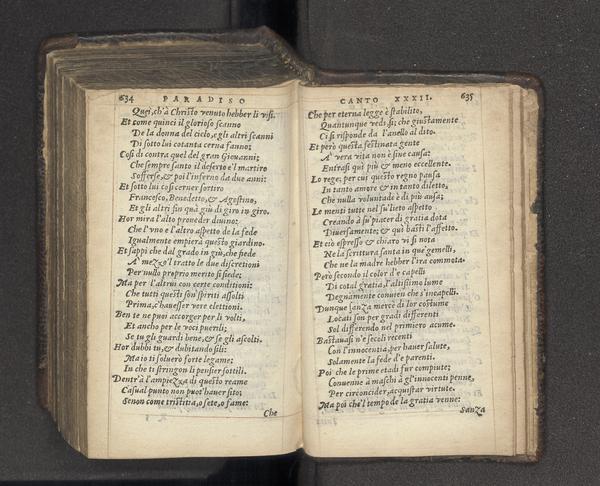 634
PARADISO
Quei, ch'à Christo venuto hebber li visi.
Et come quinci il glorioso scanno
De la donna del cielo, e gli altri scanni
Di sotto lui cotanta cerna fanno:
Cosi di contra quel del gran Giouanni;
Che sempre santo il deserto e'l martiro
Sofferse, & poi l'inferno da due anni:
Et sotto lui cosi cerner sortiro
Francesco, Benedetto, & Agostino,
Et gli altri fin quà giù di giro in giro.
Hor mira l'alto proueder diuino:
Che l'vno e l'altro aspetto de la fede
Igualmente empierà questo giardino.
Et sappi che dal grado in giù, che fiede
A mezzo'l tratto le due discretioni
Per nullo proprio merito si siede;
Ma per l'altrui con certe conditioni:
Che tutti questi son spiriti assolti
Prima, c'hauesser vere elettioni.
Ben te ne puoi accorger per li volti,
Et ancho per le voci puerili;
Se tu gli guardi bene, & se gli ascolti.
Hor dubbi tu, & dubitando sili:
Ma io ti soluerò forte legame;
In che ti stringon li pensier sottili.
Dentr'à l'ampiezza di questo reame
Casual punto non puot'hauer sito;
Senon come tristitia, o sete, o fame:
Che
CANTO XXXII.
635
Che per eterna legge è stabilito,
Quantunque vedi, si; che giustamente
Ci si risponde da l'anello al dito.
Et però questa festinata gente
A' vera vita non è sine causa:
Entrasi quì più & meno eccellente.
Lo rege; per cui questo regno pausa
In tanto amore & in tanto diletto,
Che nulla voluntade è di più ausa;
Le menti tutte nel su' lieto aspetto
Creando à su' piacer di gratia dota
Diuersamente; & qui basti l'affetto.
Et ciò espresso & chiaro vi si nota
Ne la scrittura santa in que' gemelli,
Che ne la madre hebber l'ira commota.
Però secondo il color d'e capelli
Di cotal gratia, l'altissimo lume
Degnamente conuien che s'incapelli.
Dunque sanza mercè di lor costume
Locati son per gradi differenti
Sol differendo nel primiero acume.
Bastauasi n'e secoli recenti
Con l'innocentia, per hauer salute,
Solamente la fede d'e parenti.
Poi che le prime etadi fur compiute;
Conuenne à maschi à gl'innocenti penne,
Per circoncider, acquistar virtute.
Ma poi che'l tempo de la gratia venne:
Sanza